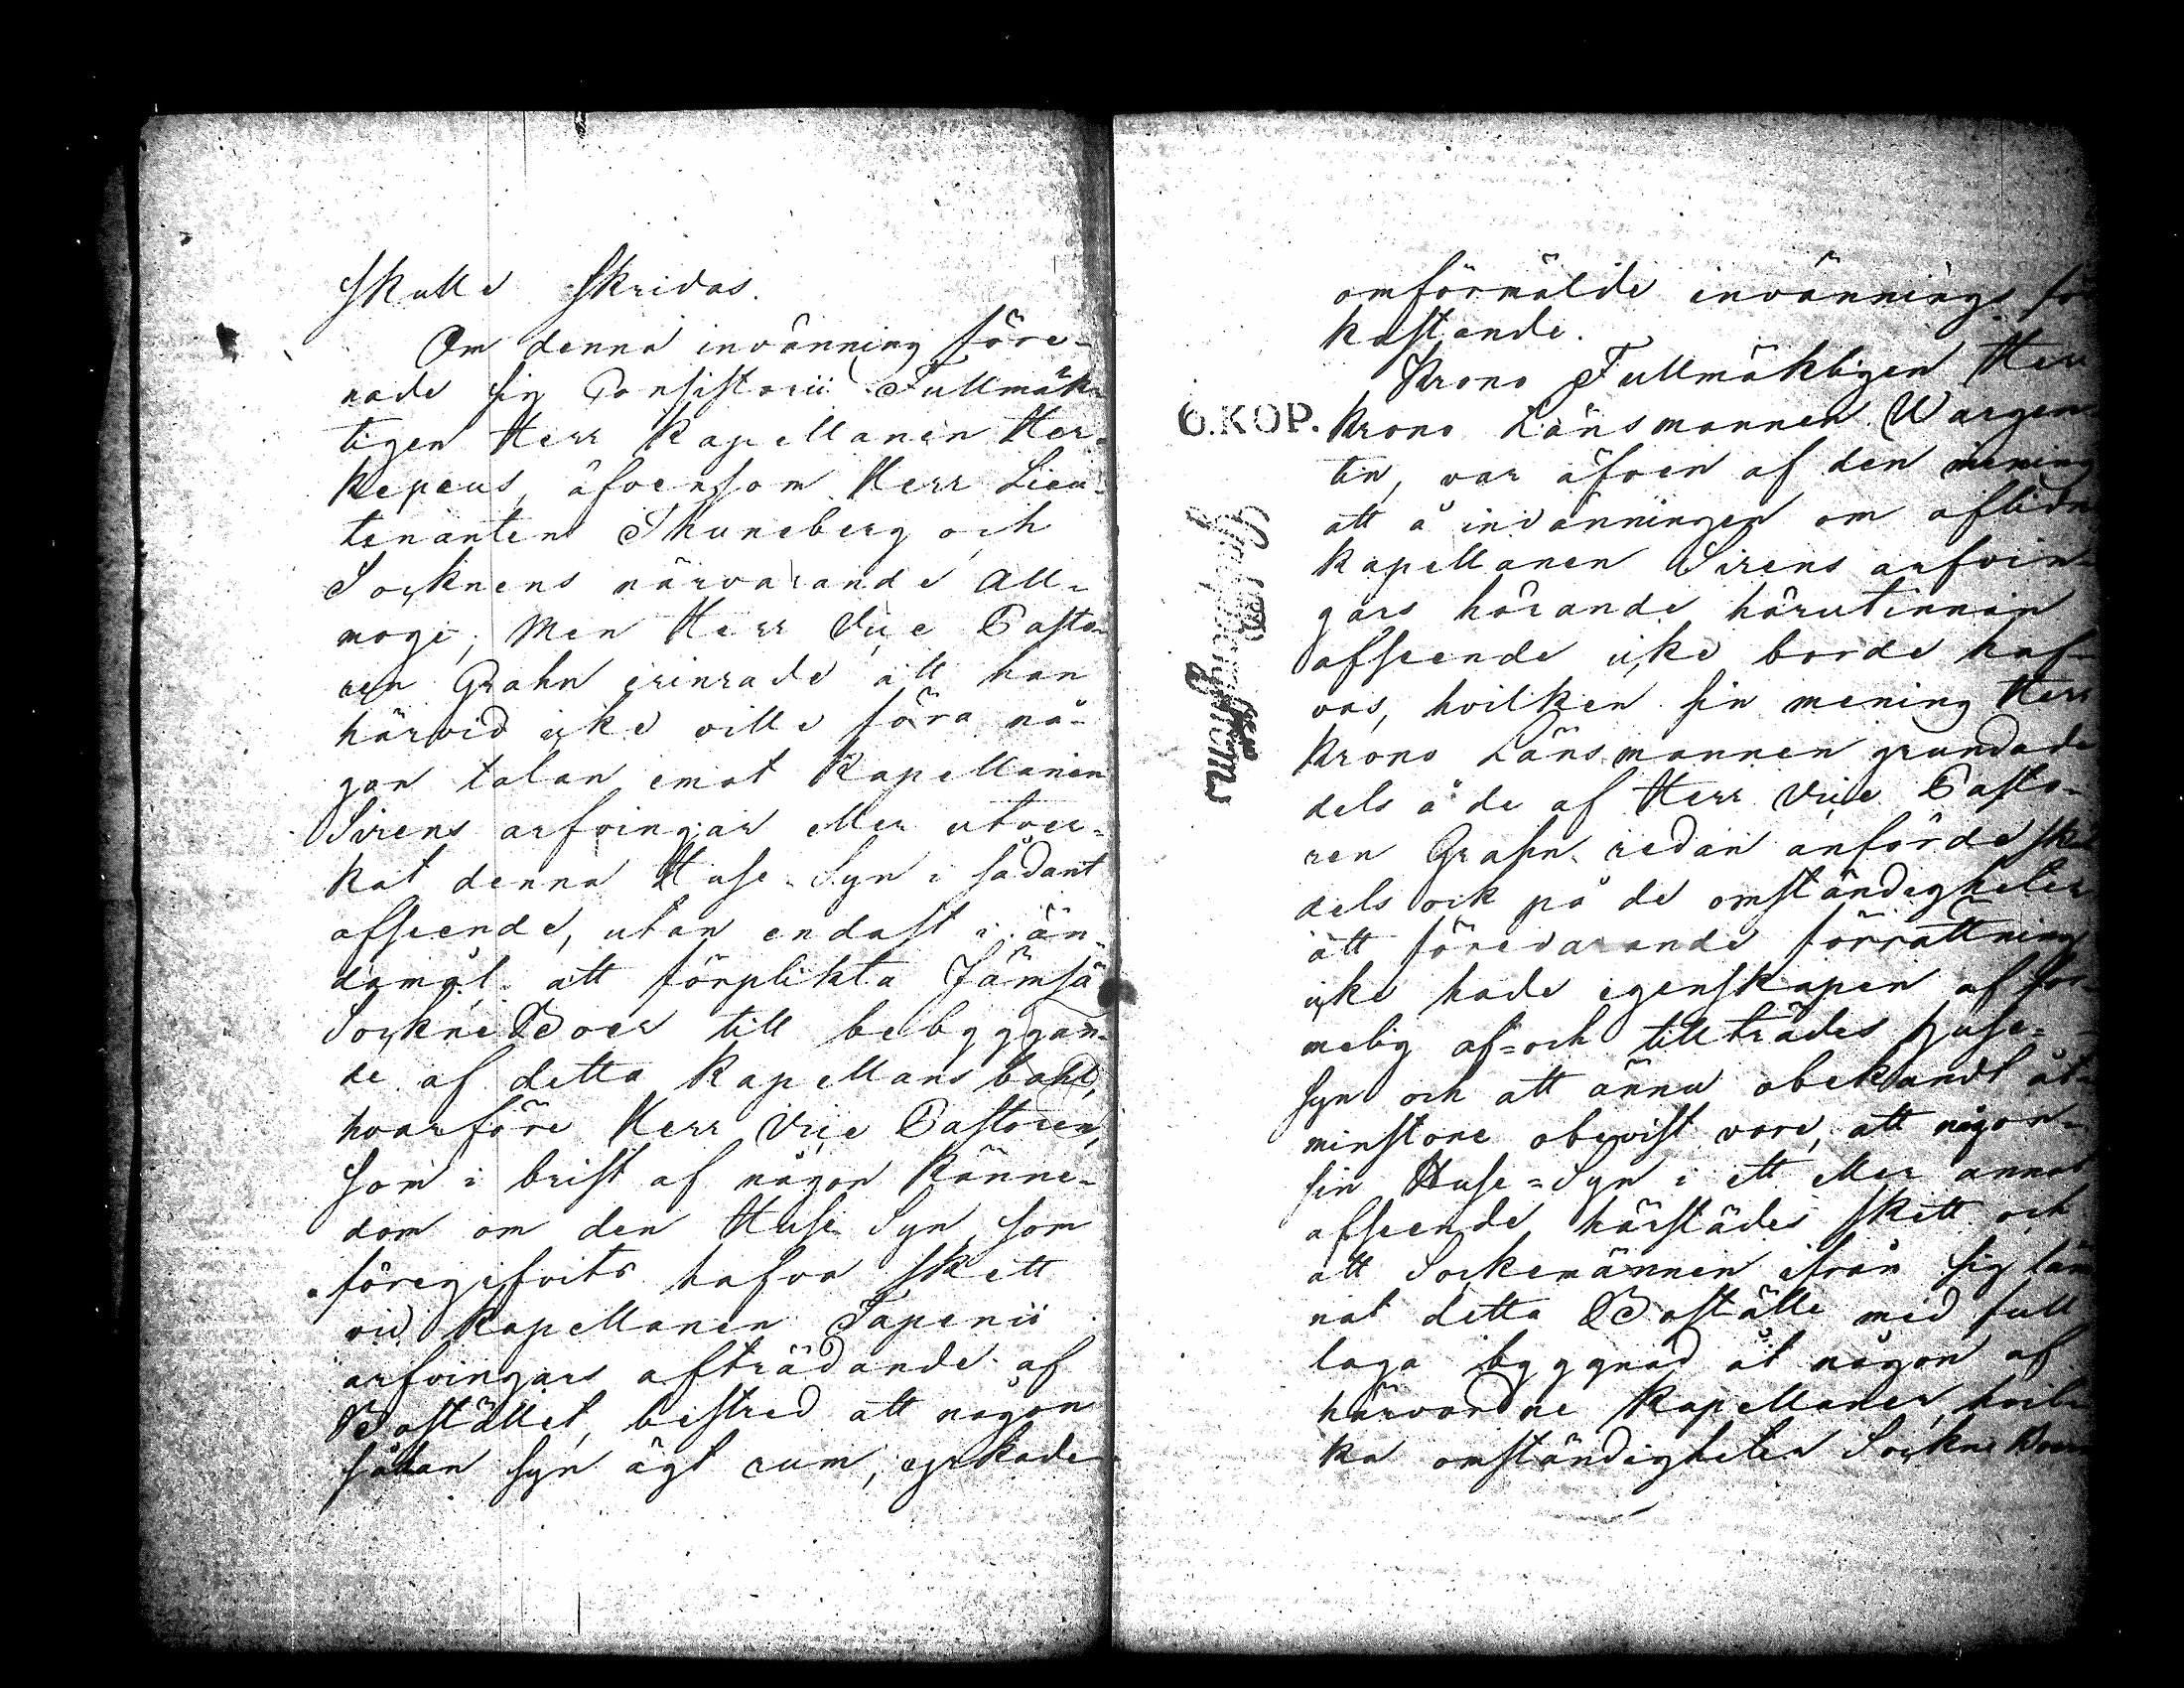 skulle skridas.
Om denna invänning före-
nade sig Consistorii Fullmäk-
tigen Herr Kapellanen Her-
kepeus, äfvensom Herr Lieu-
tenanten Thuneberg och
Socknens närvarande All-
moge, Men Herr Vice Pasto-
ren Grahn erinrade att han
härvid icke ville föra nå-
gon talan emot Kapellanen
Sirens arfvingar eller utver-
kat denna Huse-Syn i sådant
afseende, utan endast i än-
damål att förplikta Jämsä
Sockne Boer till bebyggan-
de af detta Kapellans bohl,
hvarföre Herr Vice Pastoren,
som i brist af någon känne-
dom om den Huse Syn, som
föregifvits hafva skett
vid Kapellanen Tapenii
arfvingars afträdande af
Bostället, bestred att någon
sådan syn ägt rum, yrkade
omförmälde invännings för
kastande.
Krono Fullmäktigen Herr
6.KOP. Krono Länsmannen Wargen-
tin, var äfven af den mening
att å invänningen om aflidne
Kapellanen Sirens arfvin-
gars hörande härutinnan
afseende icke borde haf-
vas, hvilken sin mening Herr
Krono Länsmannen grundade
dels å de af Herr Vice Pasto-
ren Grahn redan anförde skäl
dels ock på de omständigheter
att förevarande förrättning
icke hade egenskapen af for-
melig af- och tillträdes huse-
syn och att ännu obekandt åt-
minstone obevist vore, att någon-
sin Huse-Syn i ett eller annat
afseende härstädes skett och
att Sockemännen ifrån sig läm
nat detta Boställe med full
laga byggnad åt någon af
härvordne Kapellaner, hvil-
ka omständigheter Sockne Boer